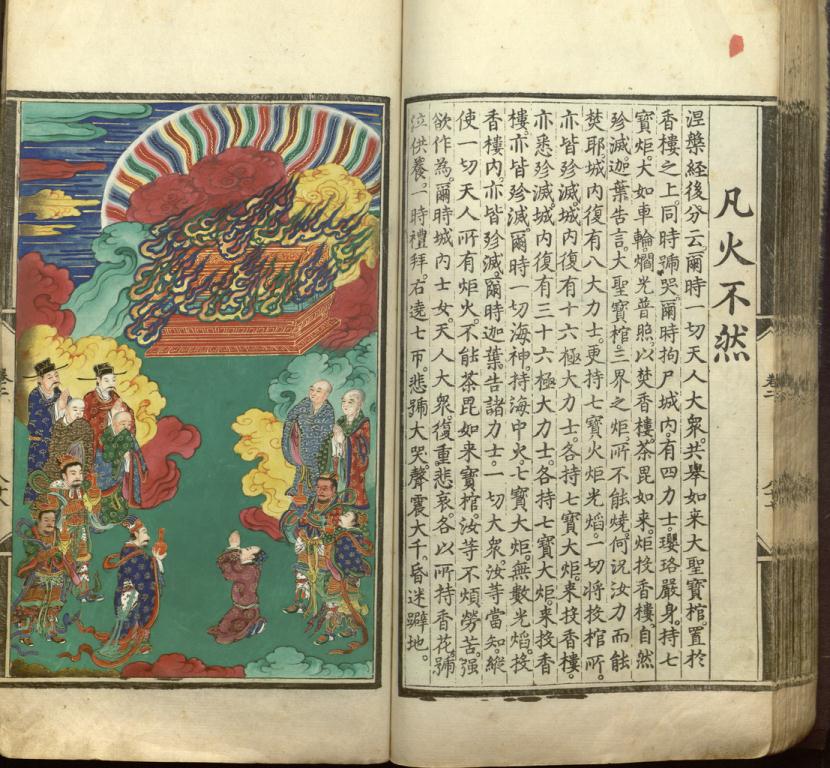 凡火不然
涅槃經後分云。爾時一切天人大眾。共舉如來大聖寶棺。置於
香樓之上。同時號哭。爾時拘尸城內。有四力士。瓔珞嚴身。持七
寶炬。大如車輪。焰光普照。以焚香樓。荼毘如來。炬投香樓。自然
殄滅。迦葉告言。大聖寶棺。三界之炬。所不能燒。何況汝力而能
焚耶。城內復有八大力士。更持七寶火炬光焰。一切將投棺所。
亦皆殄滅。城內復有十六極大力士。各持七寶大炬。來投香樓。
亦悉殄滅。城內復有三十六極大力士。各持七寶大炬。來投香
樓。亦皆殄滅。爾時一切海神。持海中火。七寶大炬。無數光焰。投
香樓內。亦皆殄滅。爾時迦葉告諸力士。一切大眾。汝等當知。縱
使一切天人所有炬火。不能荼毘如來寶棺。汝等不煩勞苦。強
欲作為。爾時城內士女。天人大眾。復重悲哀。各以所持香花。號
泣供養。一時禮拜。右遶七帀。悲號大哭。聲震大千。昏迷躃地。